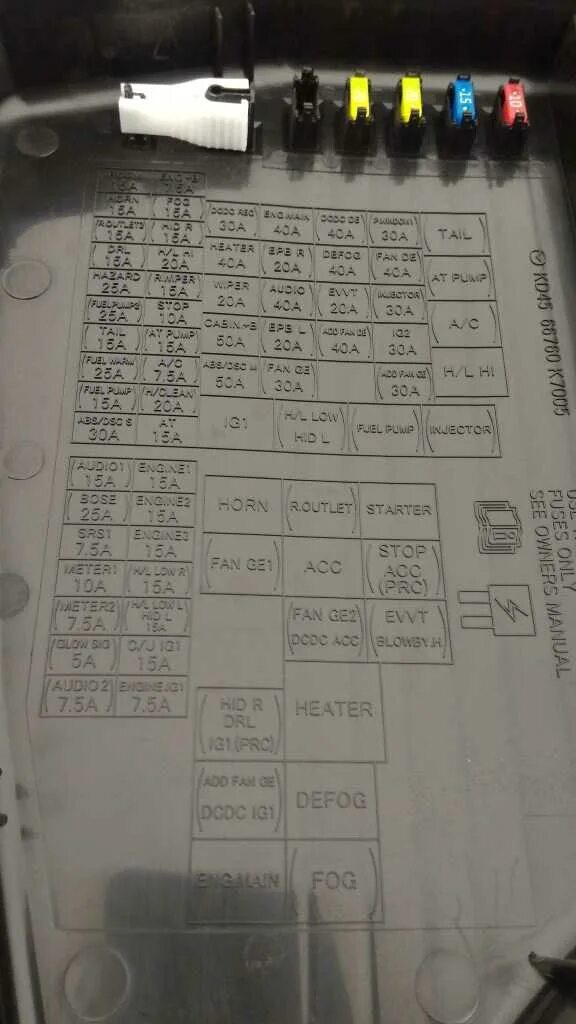 ROOM ENG+B
15A 7.5A
HORN FOG
15A 15A
(R.OUTLET3) (HID R)
15A 15A
DRL H/L HI
15A 20A
HAZARD (R.WIPER)
25A 15A
(FUEL PUMP2) STOP
25A 10A
TAIL (AT PUMP)
15A 15A
(FUEL WARM) A/C
25A 7.5A
(FUEL PUMP) (H/CLEAN)
15A 20A
ABS/DSC S AT
30A 15A
(DCDC REG) ENG.MAIN (DCDC DE) (P.WINDOW1)
30A 40A 40A 30A
HEATER (EPB R) DEFOG (FAN DE)
40A 20A 40A 40A
WIPER AUDIO (EVVT) (INJECTOR)
20A 40A 20A 30A
CABIN.+B (EPB L) (ADD FAN DE) IG2
50A 20A 40A 30A
ABS/DSC M (FAN GE) (ADD FAN GE)
50A 30A 30A
(TAIL)
AT PUMP
A/C
H/L HI
IG1 (H/L LOW HID L) (FUEL PUMP) (INJECTOR)
(AUDIO1) ENGINE1
15A 15A
(BOSE) ENGINE2
25A 15A
SRS1 ENGINE3
7.5A 15A
METER1 (H/L LOW R)
10A 15A
(METER2) (H/L LOW L HID L)
7.5A 15A
(GLOW SIG) C/U IG1
5A 15A
(AUDIO 2) ENGINE.IG1
7.5A 7.5A
HORN (R.OUTLET) STARTER
(FAN GE1) ACC (STOP ACC (PRC))
(FAN GE2) (EVVT)
DCDC ACC (BLOWBY.H)
(HID R DRL IG1(PRC)) HEATER
(ADD FAN GE) DEFOG
DCDC IG1
ENG.MAIN (FOG)
KD45 66760 K7005
FUSES ONLY
SEE OWNERS MANUAL
15
10